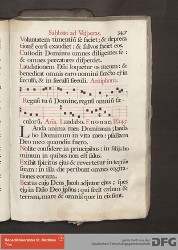 Sabbato ad Vesperas. 347
Voluntatem timentiũ se faciet: & depreca
tionẽ eorũ exaudiet: & salvos faciet eos.
Custodit Dominus omnes diligentes se:
& omnes peccatores disperdet.
Laudationem Dñi loquetur os meum: &
benedicat omnis caro nomini sancto ejus in
sæculũ, & in sæculũ sæculi. Antiphona.
Regnũ tuũ Domine, regnũ omniũ sæ-
culorũ. Aña. Laudabo. Evovae.
Lauda anima mea Dominum, lauda
bo Dominum in vita mea: psallam
Deo meo quamdiu fuero.
Nolite confidere in principibus: in filiis ho
minum in quibus non est salus.
Exibit spiritus ejus, & revertetur in ter ram
suam: in illa die peribunt omnes cogita
tiones eorum.
Beatus cujus Deus Jacob adjutor ejus: spes
ejus in Dño Deo ipsius: qui fecit cœlum &
terram, mare & omnia quæ in eis sunt.
DFG